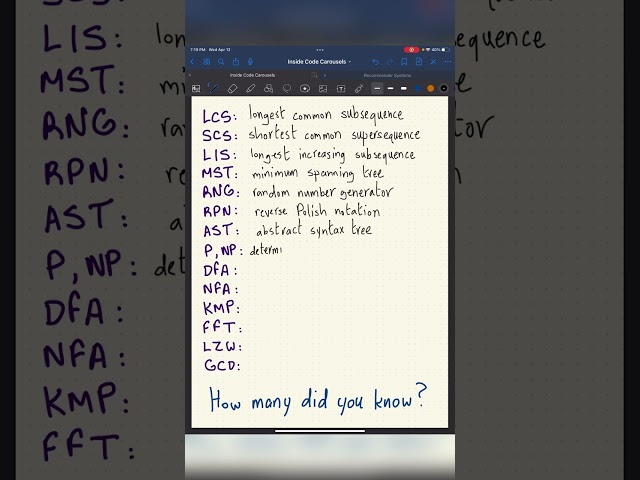 7:19 PM Wed Apr 12
40%
Inside Code Carousels
Inside Code Carousels
Recommender Systems
LCS: longest common subsequence
SCS: shortest common supersequence
LIS: longest increasing subsequence
MST: minimum spanning tree
RNG: random number generator
RPN: reverse Polish notation
AST: abstract syntax tree
P, NP: determi
DFA:
NFA:
KMP:
FFT:
LZW:
GCD:
How many did you know?
LIS: lon
equence
MST: mi
RNG: ra
tor
RPN: re
AST: a
P, NP: det
DFA:
NFA:
KMP:
FFT: